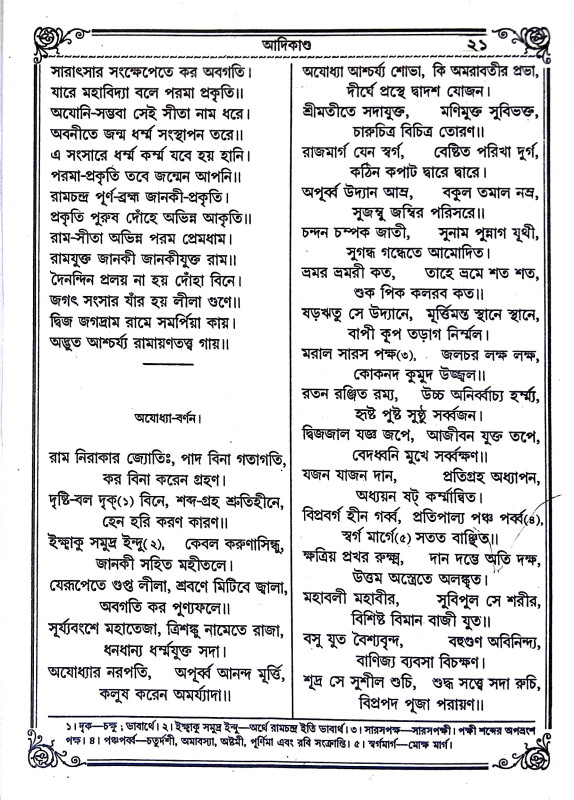 আদিকাণ্ড
২১
সারাৎসার সংক্ষেপেতে কর অবগতি।
যারে মহাবিদ্যা বলে পরমা প্রকৃতি॥
অযোনি-সম্ভবা সেই সীতা নাম ধরে।
অবনীতে জন্ম ধর্ম্ম সংস্থাপন তরে॥
এ সংসারে ধর্ম্ম কর্ম্ম যবে হয় হানি।
পরমা-প্রকৃতি তবে জন্মেন আপনি॥
রামচন্দ্র পূর্ণ-ব্রহ্ম জানকী-প্রকৃতি।
প্রকৃতি পুরুষ দোঁহে অভিন্ন আকৃতি॥
রাম-সীতা অভিন্ন পরম প্রেমধাম।
রামযুক্ত জানকী জানকীযুক্ত রাম॥
দৈনন্দিন প্রলয় না হয় দোঁহা বিনে।
জগৎ সংসার যাঁর হয় লীলা গুণে॥
দ্বিজ জগদ্রাম রামে সমর্পিয়া কায়।
অদ্ভুত আশ্চর্য্য রামায়ণতত্ত্ব গায়॥
অযোধ্যা-বর্ণন।
রাম নিরাকার জ্যোতিঃ, পাদ বিনা গতাগতি,
কর বিনা করেন গ্রহণ।
দৃষ্টি-বল দৃক্(১) বিনে, শব্দ-গ্রহ শ্রুতিহীনে,
হেন হরি করণ কারণ॥
ইক্ষ্বাকু সমুদ্র ইন্দু(২), কেবল করুণাসিন্ধু,
জানকী সহিত মহীতলে।
যেরূপেতে গুপ্ত লীলা, শ্রবণে মিটিবে জ্বালা,
অবগতি কর পুণ্যফলে॥
সূর্য্যবংশে মহাতেজা, ত্রিশঙ্কু নামেতে রাজা,
ধনধান্য ধর্ম্মযুক্ত সদা।
অযোধ্যার নরপতি, অপূর্ব্ব আনন্দ মূর্ত্তি,
কলুষ করেন অমর্য্যাদা॥
অযোধ্যা আশ্চর্য্য শোভা, কি অমরাবতীর প্রভা,
দীর্ঘে প্রস্থে দ্বাদশ যোজন।
শ্রীমতীতে সদাযুক্ত, মণিমুক্ত সুবিভক্ত,
চারুচিত্র বিচিত্র তোরণ॥
রাজমার্গ যেন স্বর্গ, বেষ্টিত পরিখা দুর্গ,
কঠিন কপাট দ্বারে দ্বারে।
অপূর্ব্ব উদ্যান আম্র, বকুল তমাল নম্র,
সুজম্বু জম্বির পরিসরে॥
চন্দন চম্পক জাতী, সুনাম পুন্নাগ যূথী,
সুগন্ধ গন্ধেতে আমোদিত।
ভ্রমর ভ্রমরী কত, তাহে ভ্রমে শত শত,
শুক পিক কলরব কত॥
ষড়ঋতু সে উদ্যানে, মূর্ত্তিমন্ত স্থানে স্থানে,
বাপী কূপ তড়াগ নির্ম্মল।
মরাল সারস পক্ষ(৩), জলচর লক্ষ লক্ষ,
কোকনদ কুমুদ উজ্জ্বল॥
রতন রঞ্জিত রম্য, উচ্চ অনির্ব্বাচ্য হর্ম্ম্য,
হৃষ্ট পুষ্ট সুষ্ঠু সর্ব্বজন।
দ্বিজজাল যজ্ঞ জপে, আজীবন যুক্ত তপে,
বেদধ্বনি মুখে সর্ব্বক্ষণ॥
যজন যাজন দান, প্রতিগ্রহ অধ্যাপন,
অধ্যয়ন ষট্ কর্ম্মান্বিত।
বিপ্রবর্গ হীন গর্ব্ব, প্রতিপাল্য পঞ্চ পর্ব্ব(৪),
স্বর্গ মার্গে(৫) সতত বাঞ্ছিত॥
ক্ষত্রিয় প্রখর রুক্ষ্ম, দান দম্ভে অতি দক্ষ,
উত্তম অস্ত্রেতে অলঙ্কৃত।
মহাবলী মহাবীর, সুবিপুল সে শরীর,
বিশিষ্ট বিমান বাজী যুত॥
বসু যুত বৈশ্যবৃন্দ, বহুগুণ অবিনিন্দ্য,
বাণিজ্য ব্যবসা বিচক্ষণ।
শূদ্র সে সুশীল শুচি, শুদ্ধ সত্ত্বে সদা রুচি,
বিপ্রপদ পূজা পরায়ণ॥
১। দৃক—চক্ষু; ভাবার্থে। ২। ইক্ষ্বাকু সমুদ্র ইন্দু—অর্থে রামচন্দ্র ইতি ভাবার্থ। ৩। সারসপক্ষ—সারসপক্ষী। পক্ষী শব্দের অপভ্রংশে
পক্ষ। ৪। পঞ্চপর্ব্ব—চতুর্দশী, অমাবস্যা, অষ্টমী, পূর্ণিমা এবং রবি সংক্রান্তি। ৫। স্বর্গমার্গ—মোক্ষ মার্গ।